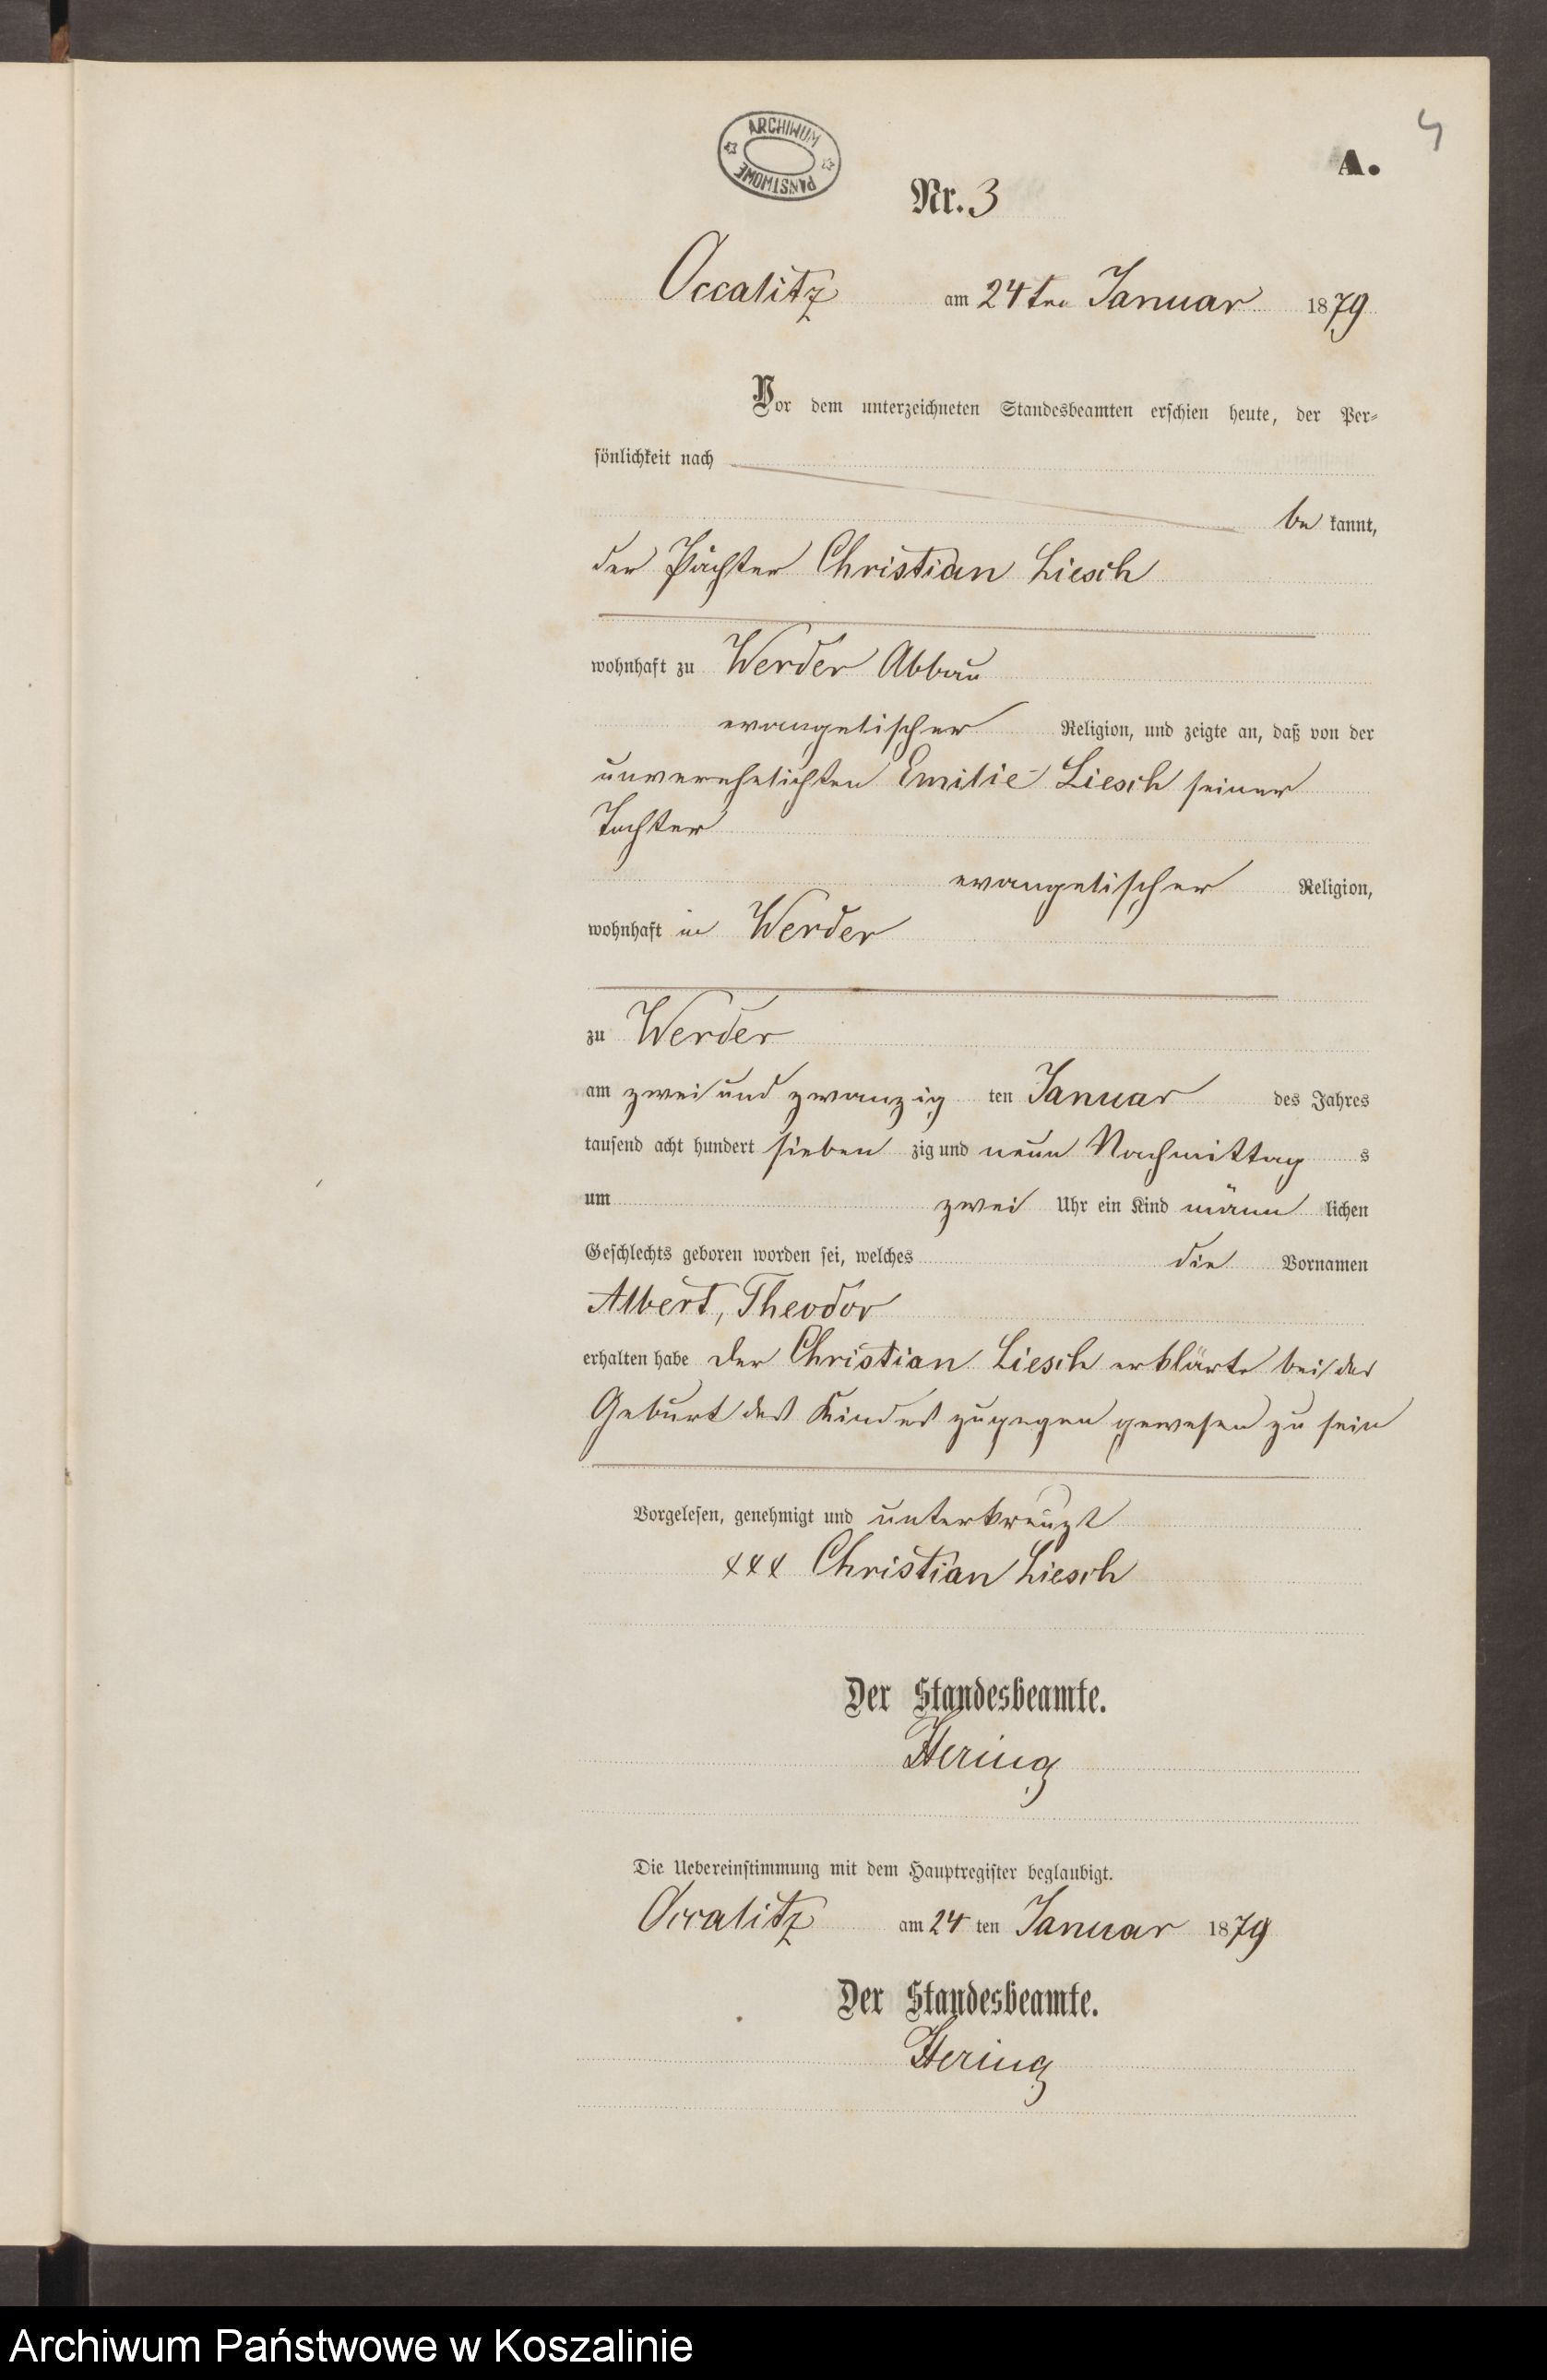 4
ARCHIWUM
PAŃSTWOWE
A.
Nr. 3
Occalitz am 24ten Januar 1879
Vor dem unterzeichneten Standesbeamten erschien heute, der Per-
sönlichkeit nach
be kannt,
der Pächter Christian Liesch
wohnhaft zu Werder Abbau
evangelischer Religion, und zeigte an, daß von der
unverehelichten Emilie Liesch seiner
Tochter
evangelischer Religion,
wohnhaft in Werder
zu Werder
am zwei und zwanzig ten Januar des Jahres
tausend acht hundert sieben zig und neun Nachmittag s
um zwei Uhr ein Kind männ lichen
Geschlechts geboren worden sei, welches die Vornamen
Albert, Theodor
erhalten habe der Christian Liesch erklärte bei der
Geburt des Kindes zugegen gewesen zu sein
Vorgelesen, genehmigt und unterkreuzt
xxx Christian Liesch
Der Standesbeamte.
Hering
Die Uebereinstimmung mit dem Hauptregister beglaubigt.
Occalitz am 24 ten Januar 1879
Der Standesbeamte.
Hering
Archiwum Państwowe w Koszalinie